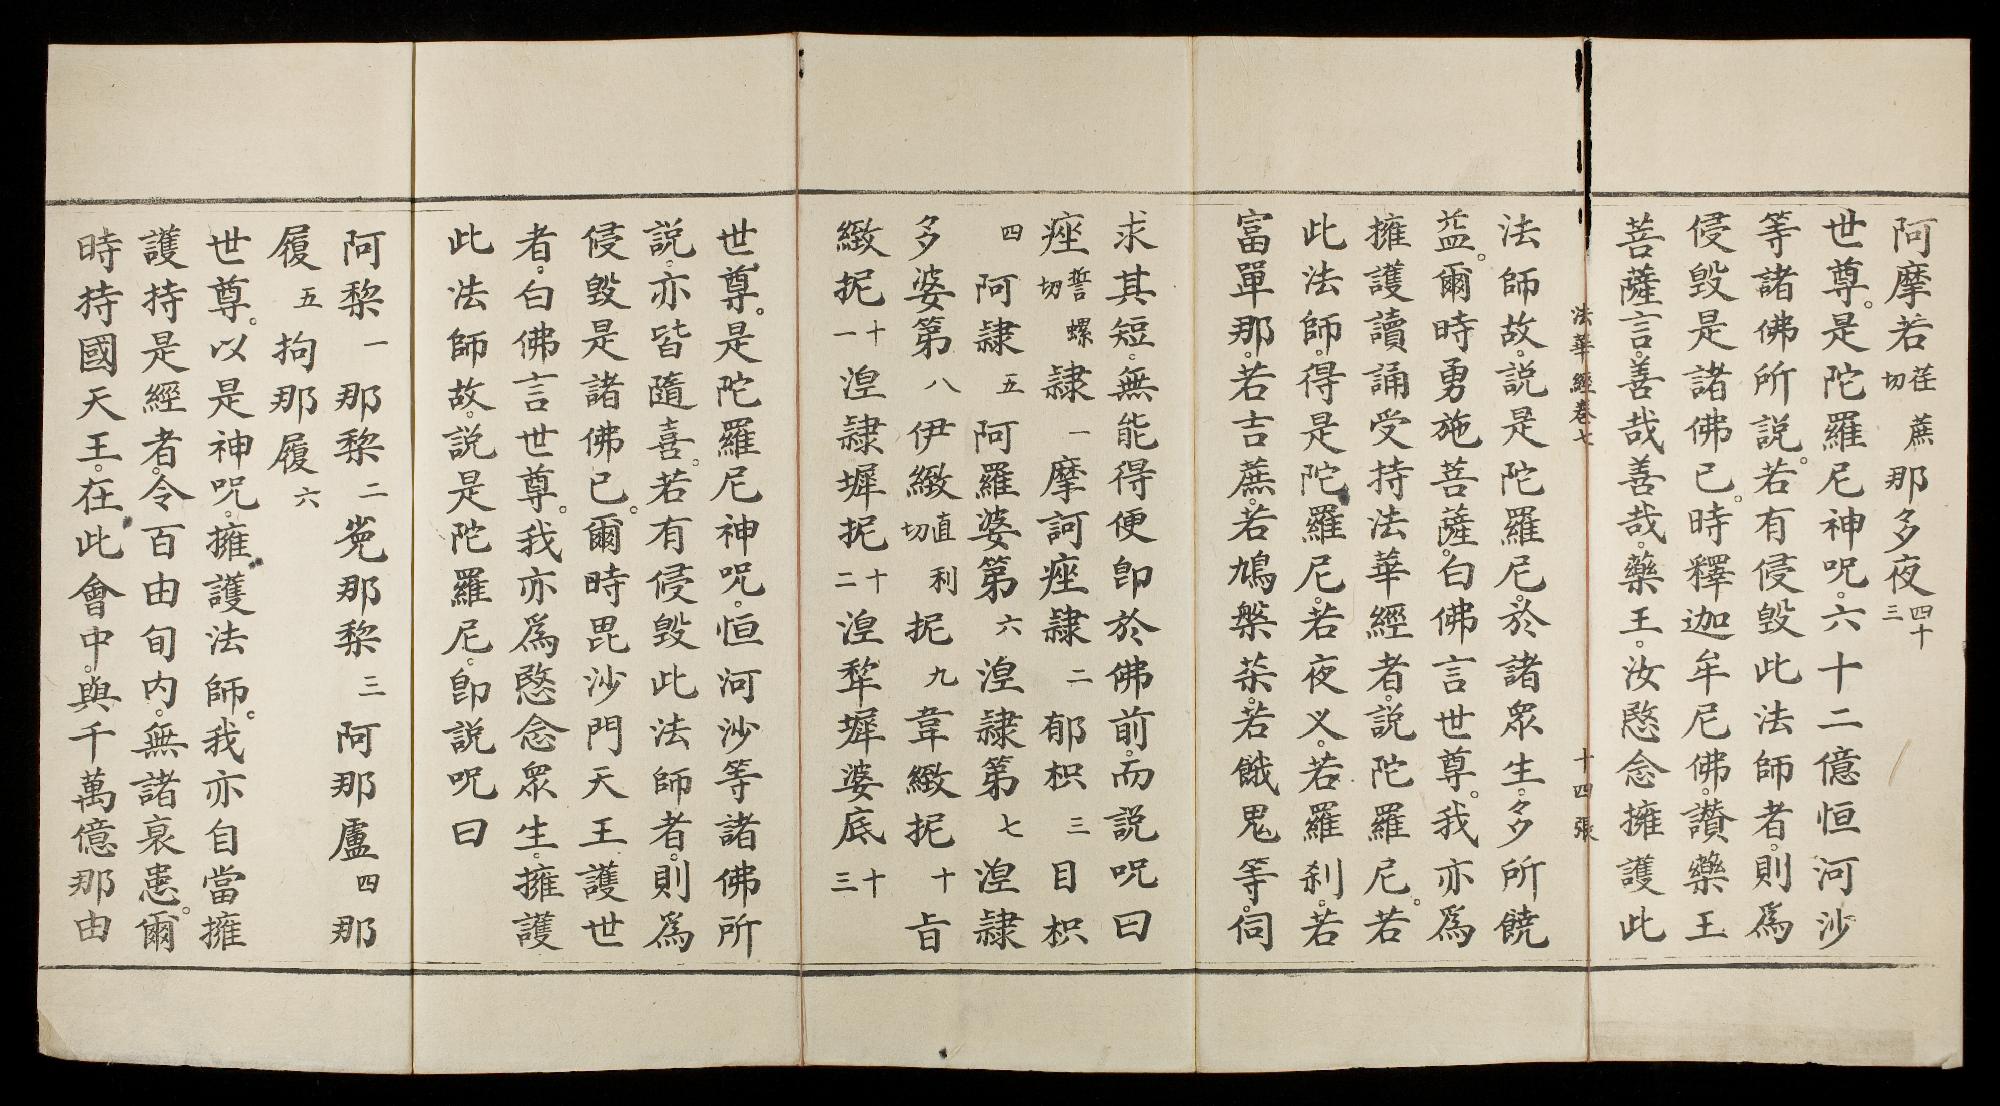 阿摩若荏蔗切那多夜四十三
世尊。是陀羅尼神呪。六十二億恒河沙
等諸佛所說。若有侵毀此法師者。則為
侵毀是諸佛已。時釋迦牟尼佛。讚藥王
菩薩言。善哉善哉。藥王。汝愍念擁護此
法華經卷七 十四張
法師故。說是陀羅尼。於諸眾生。多所饒
益。爾時勇施菩薩。白佛言世尊。我亦為
擁護讀誦受持法華經者。說陀羅尼。若
此法師。得是陀羅尼。若夜叉。若羅剎。若
富單那。若吉蔗。若鳩槃茶。若餓鬼等。伺
求其短。無能得便即於佛前。而說呪曰
痤誓螺切隸一摩訶痤隸二郁枳三目枳
四阿隸五阿羅婆第六涅隸第七涅隸
多婆第八伊緻直利切抳九韋緻抳十旨
緻抳十一涅隸墀抳十二涅犂墀婆底十三
世尊。是陀羅尼神呪。恒河沙等諸佛所
說。亦皆隨喜。若有侵毀此法師者。則為
侵毀是諸佛已。爾時毘沙門天王護世
者。白佛言世尊。我亦為愍念眾生。擁護
此法師故。說是陀羅尼。即說呪曰
阿犂一那犂二㝹那犂三阿那盧四那
履五拘那履六
世尊。以是神呪。擁護法師。我亦自當擁
護持是經者。令百由旬內。無諸衰患。爾
時持國天王。在此會中。與千萬億那由